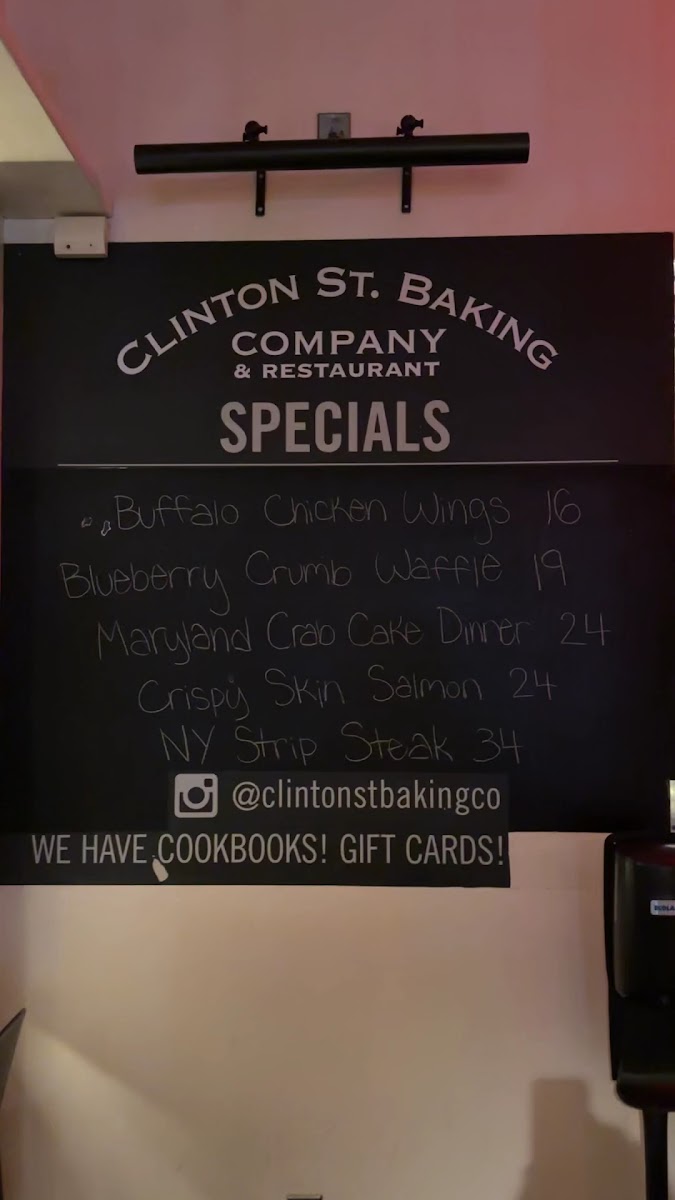 CLINTON ST. BAKING
COMPANY
& RESTAURANT
SPECIALS
Buffalo Chicken Wings 16
Blueberry Crumb Waffle 19
Maryland Crab Cake Dinner 24
Crispy Skin Salmon 24
NY Strip Steak 34
@clintonstbakingco
WE HAVE COOKBOOKS! GIFT CARDS!